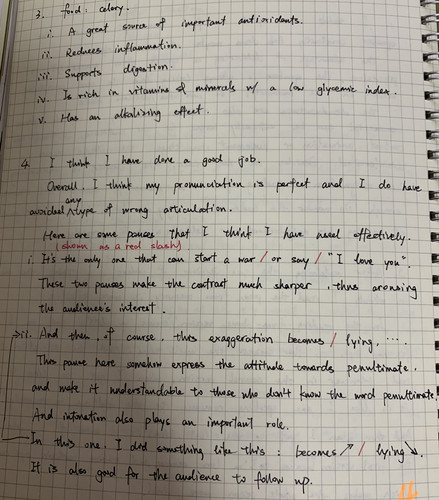 3. food: celery.
i. A great source of important antioxidants.
ii. Reduces inflammation.
iii. Supports digestion.
iv. Is rich in vitamins & minerals w/ a low glycemic index.
v. Has an alkalizing effect.
4. I think I have done a good job.
Overall, I think my pronunciation is perfect and I do have
avoided any type of wrong articulation.
Here are some pauses that I think I have used effectively.
(shown as a red slash)
i. It's the only one that can start a war / or say / "I love you".
These two pauses make the contrast much sharper, thus arousing
the audience's interest.
ii. And then, of course, this exaggeration becomes / lying, ....
This pause here somehow express the attitude towards penultimate,
and make it understandable to those who don't know the word penultimate.
And intonation also plays an important role.
In this one, I did something like this: becomes ↗ / lying ↘.
It is also good for the audience to follow up.
16